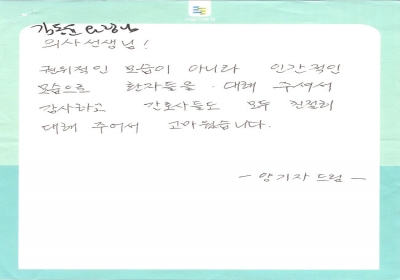 의사선생님!
권위적인 모습이 아니라 인간적인
모습으로 환자들을 대해 주셔서
감사하고 간호사들도 모두 친절히
대해 주어서 고마웠습니다.
- 양기자 드림 -